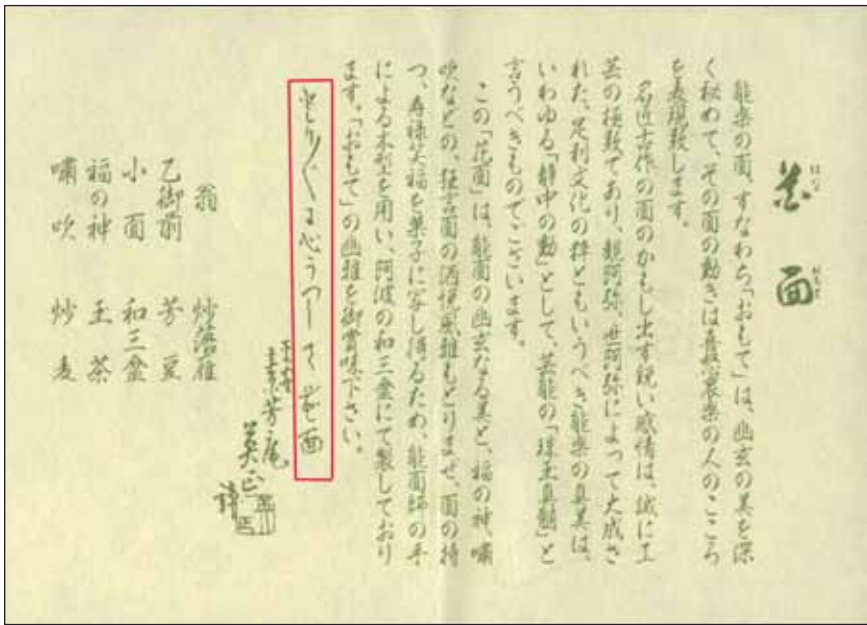 花面
はな おもて
能楽の面、すなわち「おもて」は、幽玄の美を深
く秘めて、その面の動きは喜怒哀楽の人のこころ
を表現致します。
名匠古作の面のかもし出す鋭い感情は、誠に工
芸の極致であり、観阿弥、世阿弥によって大成さ
れた、足利文化の粋ともいうべき能楽の真美は、
いわゆる「静中の動」として、芸能の「珠玉真髄」と
言うべきものでございます。
この「花面」は、能面の幽玄なる美と、福の神、嘯
吹などの、狂言面の洒悦風雅もとりまぜ、面の持
つ、寿禄笑福を菓子に写し得るため、能面師の手
による木型を用い、阿波の和三盆にて製しており
ます。「おもて」の幽雅を御賞味下さい。
とり〱に心うつして花面
素芳庵
美正
翁 炒落雁
乙御前 芳豆
小面 和三盆
福の神 玉茶
嘯吹 炒麦